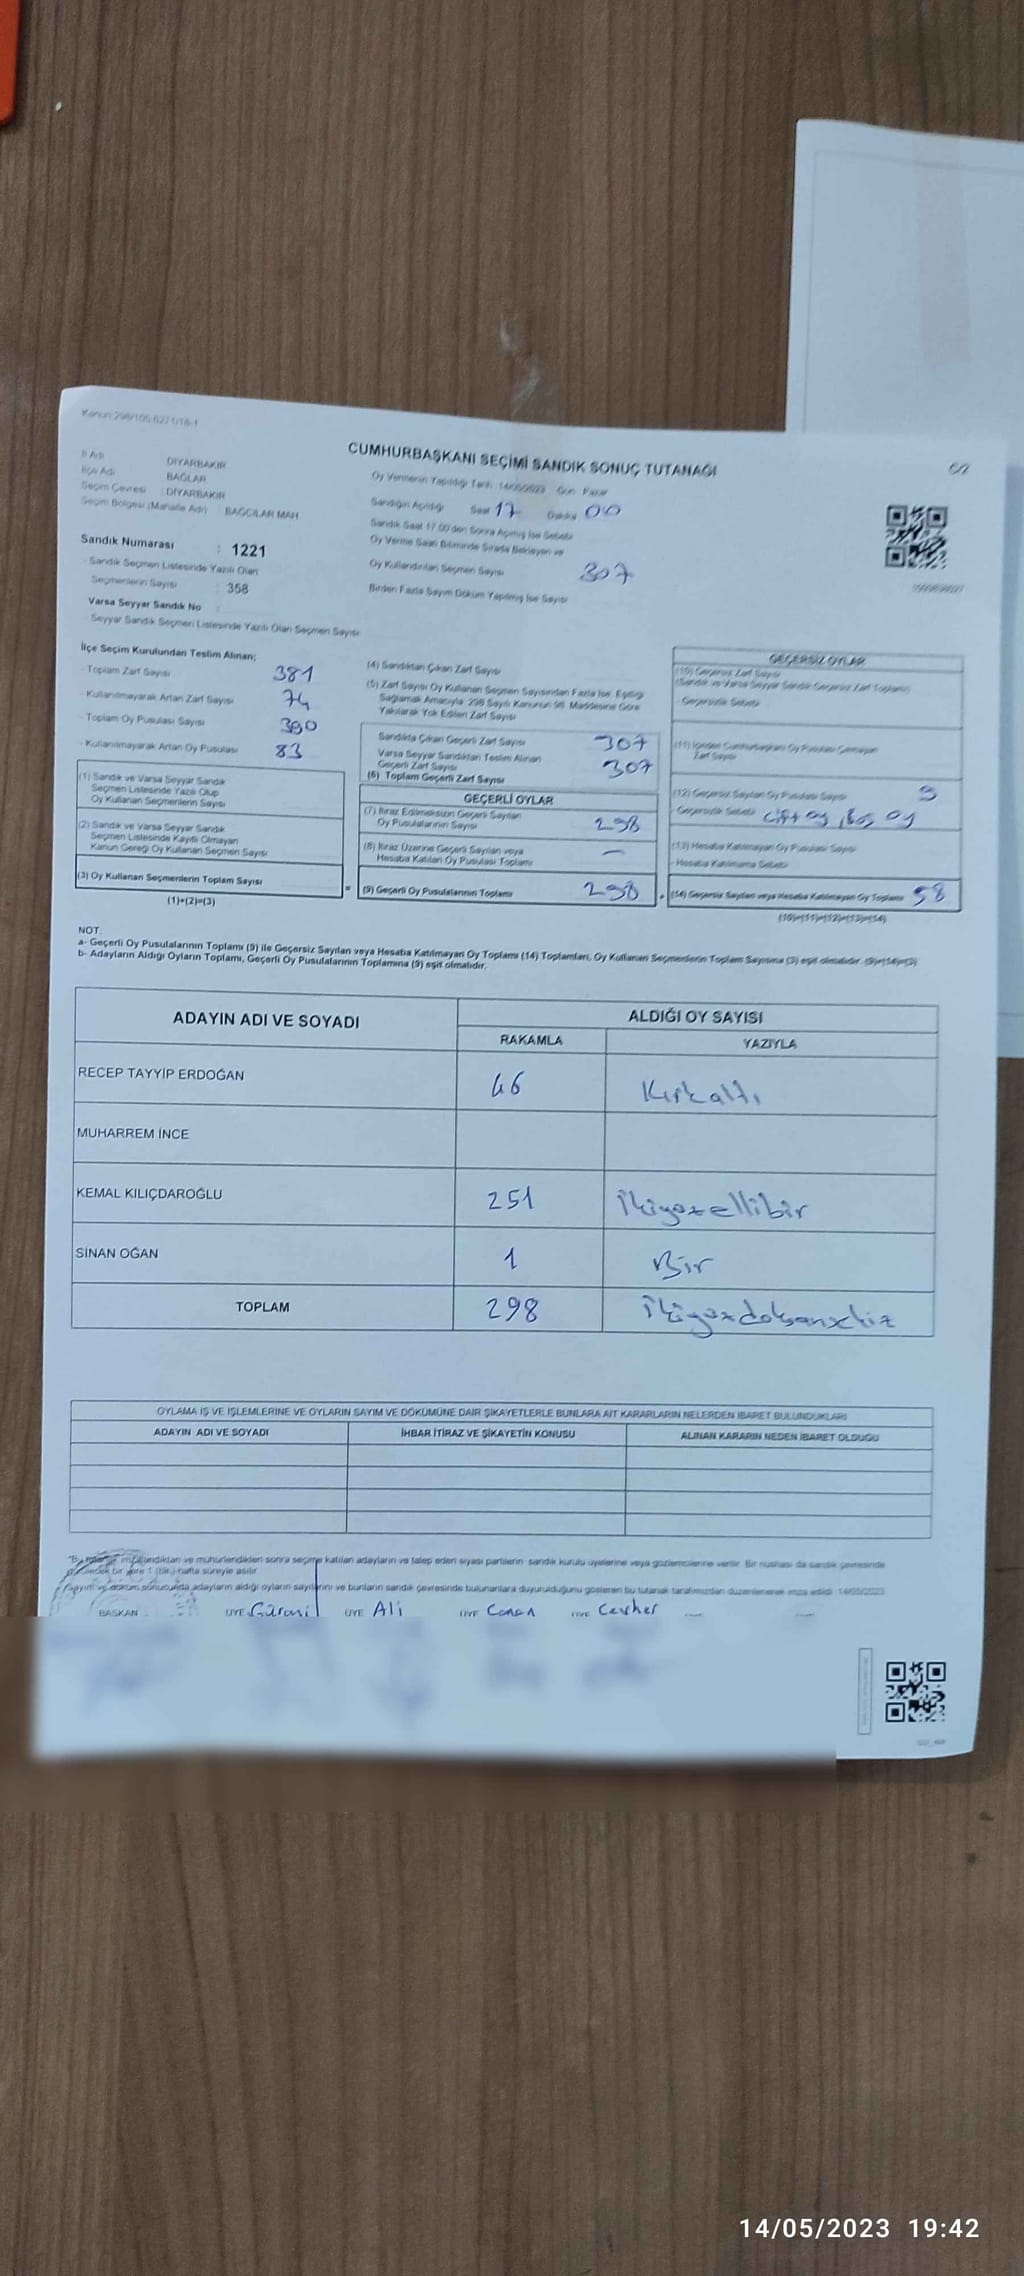 Kanun:298/105,6271/18-1
CUMHURBAŞKANI SEÇİMİ SANDIK SONUÇ TUTANAĞI
İl Adı DİYARBAKIR
İlçe Adı BAĞLAR
Seçim Çevresi : DİYARBAKIR
Seçim Bölgesi (Mahalle Adı) BAĞCILAR MAH.
Sandık Numarası : 1221
- Sandık Seçmen Listesinde Yazılı Olan
Seçmenlerin Sayısı : 358
Varsa Seyyar Sandık No :
- Seyyar Sandık Seçmen Listesinde Yazılı Olan Seçmen Sayısı
Oy Vermenin Yapıldığı Tarih :14/05/2023 Gün : Pazar
Sandığın Açıldığı Saat 17 Dakika 00
Sandık Saat 17.00'den Sonra Açılmış İse Sebebi
Oy Verme Saati Bitiminde Sırada Bekleyen ve
Oy Kullandırılan Seçmen Sayısı 307
Birden Fazla Sayım Döküm Yapılmış İse Sayısı
İlçe Seçim Kurulundan Teslim Alınan;
- Toplam Zarf Sayısı 381
- Kullanılmayarak Artan Zarf Sayısı 74
- Toplam Oy Pusulası Sayısı 390
- Kullanılmayarak Artan Oy Pusulası 83
(1) Sandık ve Varsa Seyyar Sandık
Seçmen Listesinde Yazılı Olup
Oy Kullanan Seçmenlerin Sayısı
(2) Sandık ve Varsa Seyyar Sandık
Seçmen Listesinde Kayıtlı Olmayan
Kanun Gereği Oy Kullanan Seçmen Sayısı
(3) Oy Kullanan Seçmenlerin Toplam Sayısı
(1)+(2)=(3)
(4) Sandıktan Çıkan Zarf Sayısı
(5) Zarf Sayısı Oy Kullanan Seçmen Sayısından Fazla İse, Eşitliği
Sağlamak Amacıyla; 298 Sayılı Kanunun 98. Maddesine Göre
Yakılarak Yok Edilen Zarf Sayısı
Sandıkta Çıkan Geçerli Zarf Sayısı 307
Varsa Seyyar Sandıktan Teslim Alınan
Geçerli Zarf Sayısı 307
(6) Toplam Geçerli Zarf Sayısı
GEÇERLİ OYLAR
(7) İtiraz Edilmeksizin Geçerli Sayılan
Oy Pusulalarının Sayısı 298
(8) İtiraz Üzerine Geçerli Sayılan veya
Hesaba Katılan Oy Pusulası Toplamı —
= (9) Geçerli Oy Pusulalarının Toplamı 298
GEÇERSİZ OYLAR
(10) Geçersiz Zarf Sayısı
(Sandık ve Varsa Seyyar Sandık Geçersiz Zarf Toplamı)
- Geçersizlik Sebebi
(11) İçinden Cumhurbaşkanı Oy Pusulası Çıkmayan
Zarf Sayısı
(12) Geçersiz Sayılan Oy Pusulası Sayısı 9
- Geçersizlik Sebebi çift oy, boş oy
(13) Hesaba Katılmayan Oy Pusulası Sayısı
- Hesaba Katılmama Sebebi
+ (14) Geçersiz Sayılan veya Hesaba Katılmayan Oy Toplamı 58
(10)+(11)+(12)+(13)=(14)
NOT:
a- Geçerli Oy Pusulalarının Toplamı (9) ile Geçersiz Sayılan veya Hesaba Katılmayan Oy Toplamı (14) Toplamları, Oy Kullanan Seçmenlerin Toplam Sayısına (3) eşit olmalıdır. (9)+(14)=(3)
b- Adayların Aldığı Oyların Toplamı, Geçerli Oy Pusulalarının Toplamına (9) eşit olmalıdır.
ADAYIN ADI VE SOYADI ALDIĞI OY SAYISI
RAKAMLA YAZIYLA
RECEP TAYYİP ERDOĞAN 46 Kırkaltı
MUHARREM İNCE
KEMAL KILIÇDAROĞLU 251 İkiyüzellibir
SİNAN OĞAN 1 Bir
TOPLAM 298 İkiyüzdoksansekiz
OYLAMA İŞ VE İŞLEMLERİNE VE OYLARIN SAYIM VE DÖKÜMÜNE DAİR ŞİKAYETLERLE BUNLARA AİT KARARLARIN NELERDEN İBARET BULUNDUKLARI
ADAYIN ADI VE SOYADI İHBAR İTİRAZ VE ŞİKAYETİN KONUSU ALINAN KARARIN NEDEN İBARET OLDUĞU
"Bu tutanak imzalandıktan ve mühürlendikten sonra seçime katılan adayların ve talep eden siyasi partilerin sandık kurulu üyelerine veya gözlemcilerine verilir. Bir nüshası da sandık çevresinde
görülecek bir yere 1 (Bir) hafta süreyle asılır.
Sayım ve döküm sonucunda adayların aldığı oyların sayılarını ve bunların sandık çevresinde bulunanlara duyurulduğunu gösteren bu tutanak tarafımızdan düzenlenerek imza edildi. 14/05/2023
BAŞKAN ÜYE ÜYE Ali ÜYE Canan ÜYE Cevher
14/05/2023 19:42